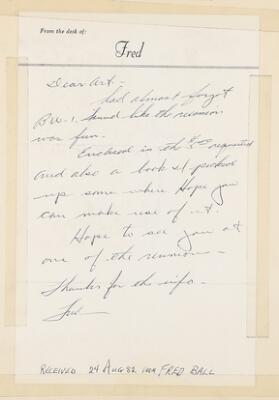 From the desk of:
Fred
Dear Art -
had almost forgot
B.W. 1. Sound like the reunion
was fun.
Enclosed is the requested
and also a book I picked
up some where Hope you
can make use of it.
Hope to see you at
one of the reunion -
Thanks for the info -
Fred
RECEIVED 24 AUG 82 FRED BALL